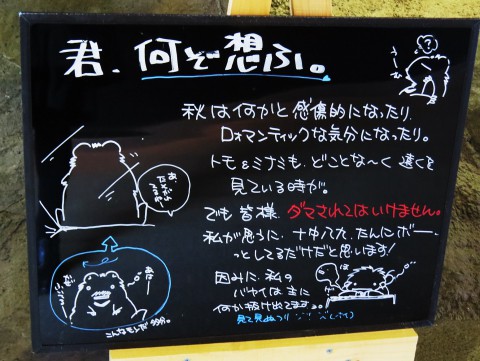 君、何ぞ想ふ。
秋は何かと感傷的になったり、
ロマンティックな気分になったり。
トモ&ミナミも、どことな〜く遠くを
見ている時が。
でも皆様、ダマされてはいけません。
私が思うに、十中八九、たんにボー
っとしてるだけだと思います!
因みに、私の
バヤイはたまに
何か抜け出てますヨ。
見て見ぬフリ
こんなモンだ多分。